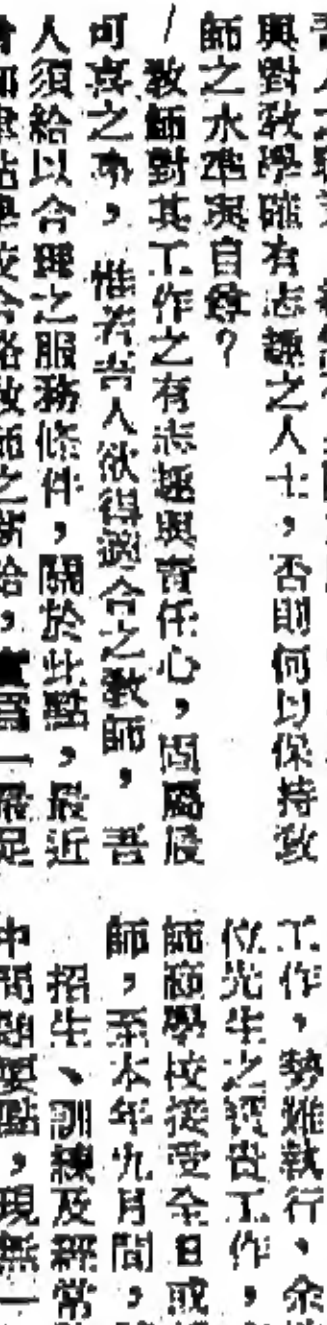 與對教學確有志趣之人士，否則何以保持教
師之水準與自尊？
教師對其工作之有志趣與責任心，固屬最
可喜之事，惟若吾人欲得適合之教師，吾
人須給以合理之服務條件，關於此點，最近
校合格教師之新給，一最足
工作，勢難執行，余
位先生之工作，
師範學校接受全日或
師，至本年九月間，
招生、訓練及經常
中問題要點，現無一